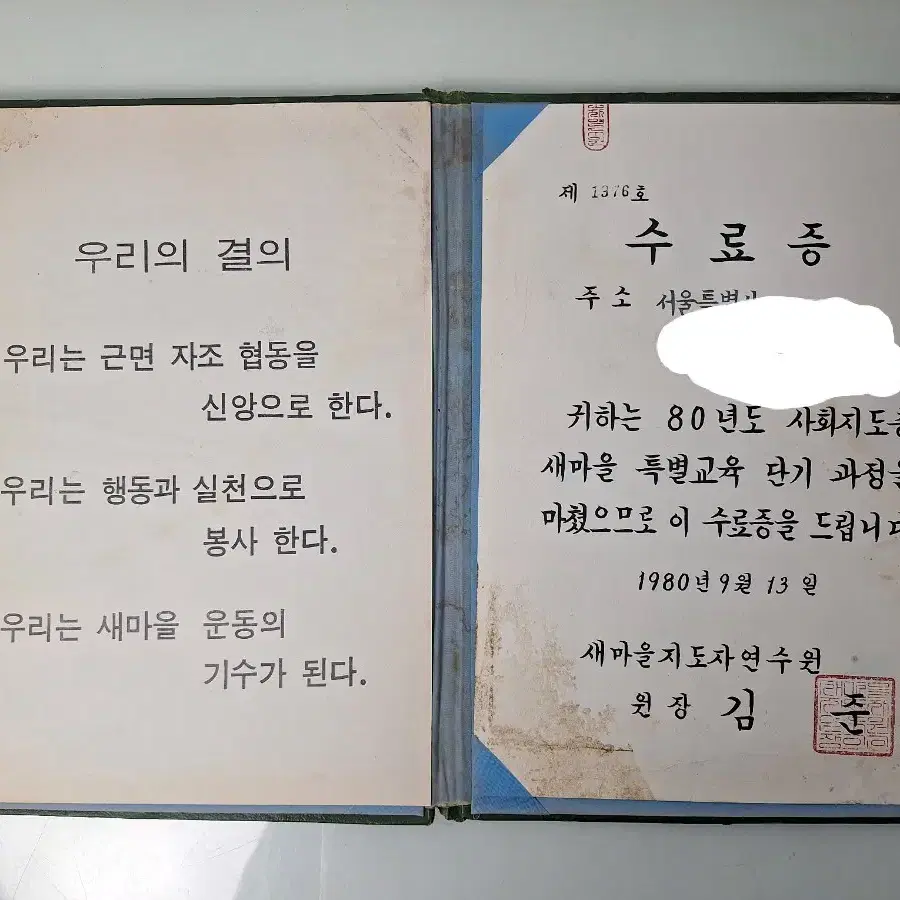 우리의 결의
우리는 근면 자조 협동을
신앙으로 한다.
우리는 행동과 실천으로
봉사 한다.
우리는 새마을 운동의
기수가 된다.
제 1376호
수료증
주소 서울특별시
귀하는 80년도 사회지도층
새마을 특별교육 단기 과정을
마쳤으므로 이 수료증을 드립니다
1980년 9월 13일
새마을지도자연수원
원장 김 준